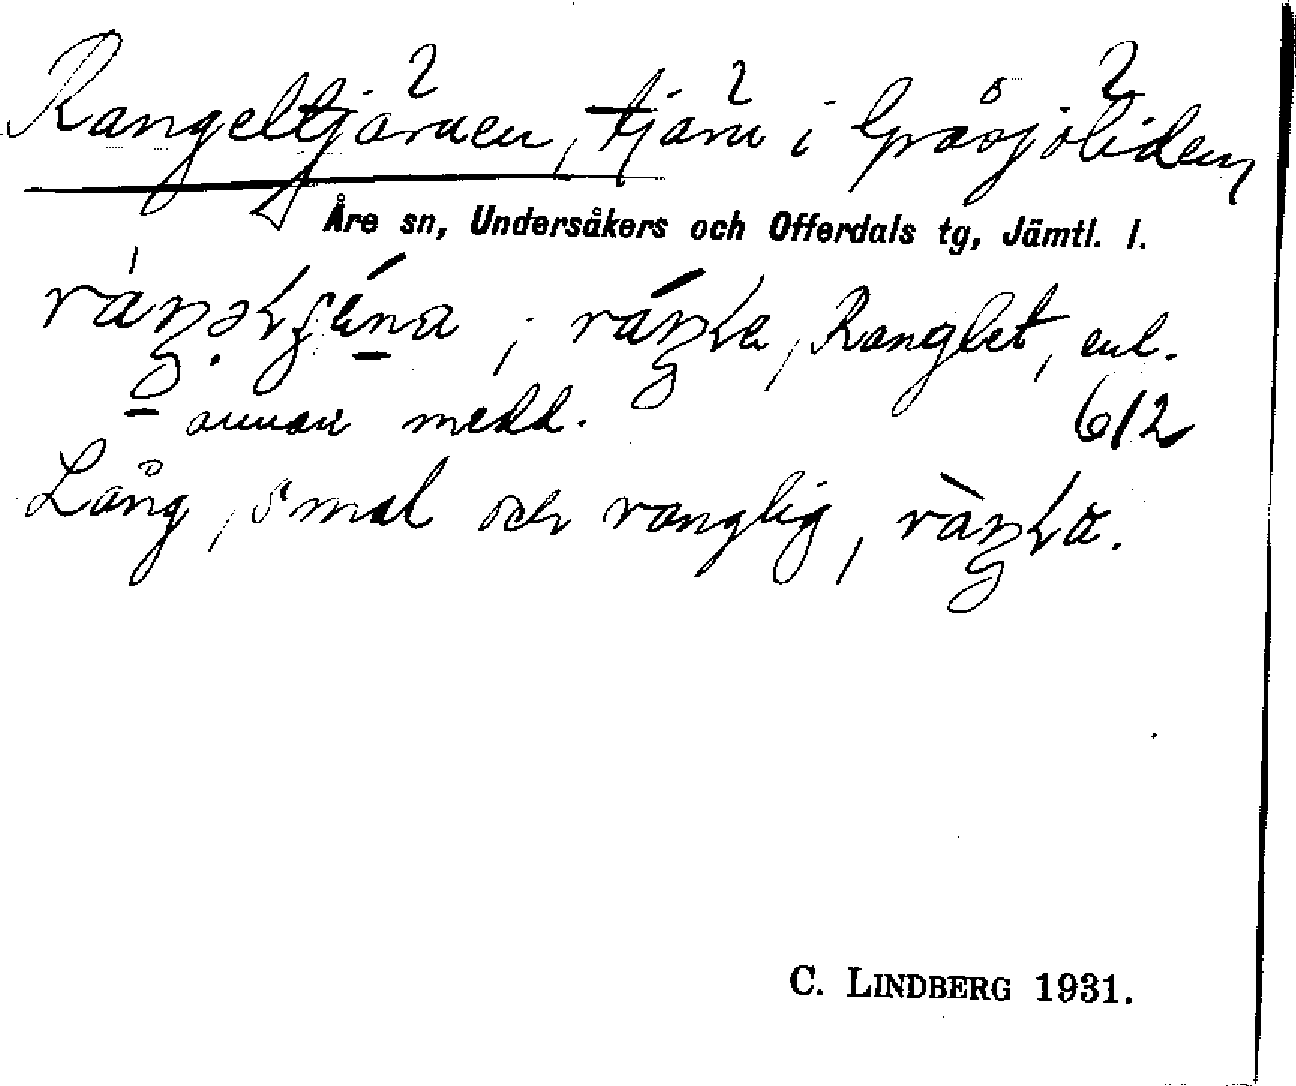 Rangeltjärnen, tjärn i Gråsjöliden,
Åre sn, Undersåkers och Offerdals tg, Jämtl. l.
Ranglet, enl.
annan medd. 612
Lång, smal och ranglig,
C. LINDBERG 1931.